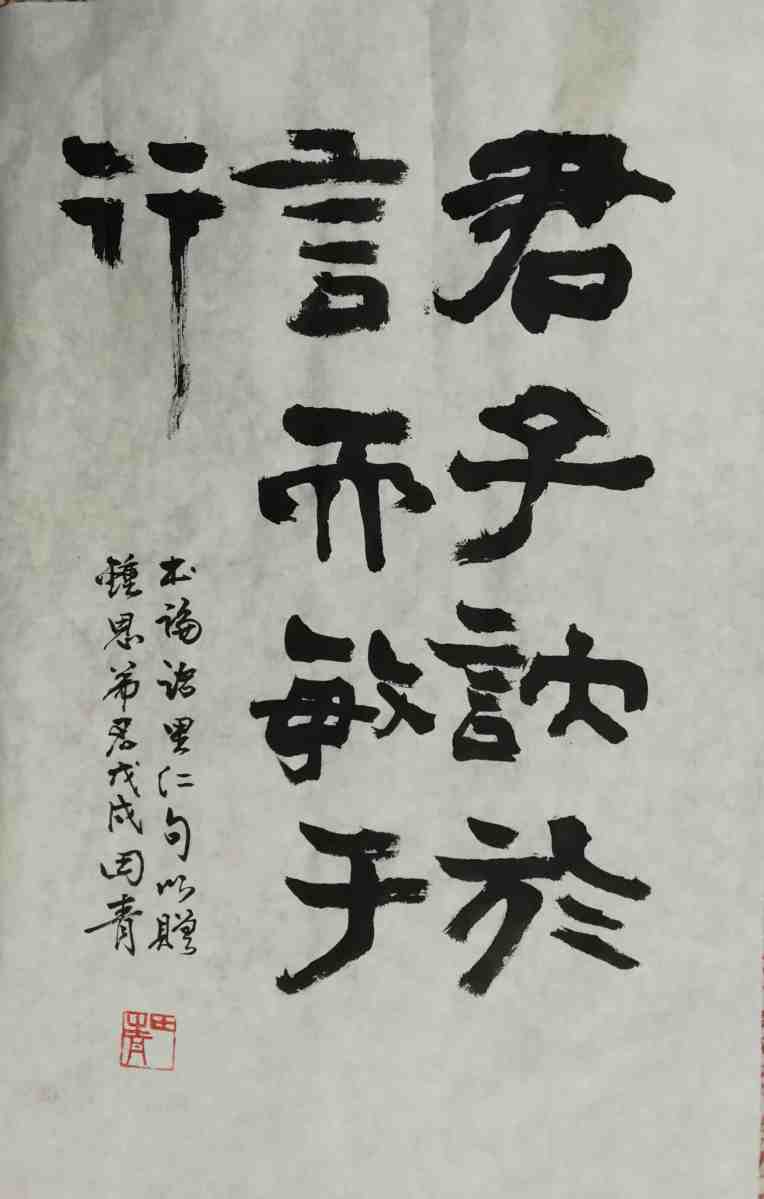 君子訥於
言而敏于
行
书論語里仁句以贈
鍾恩弟君戊戌田青
田青